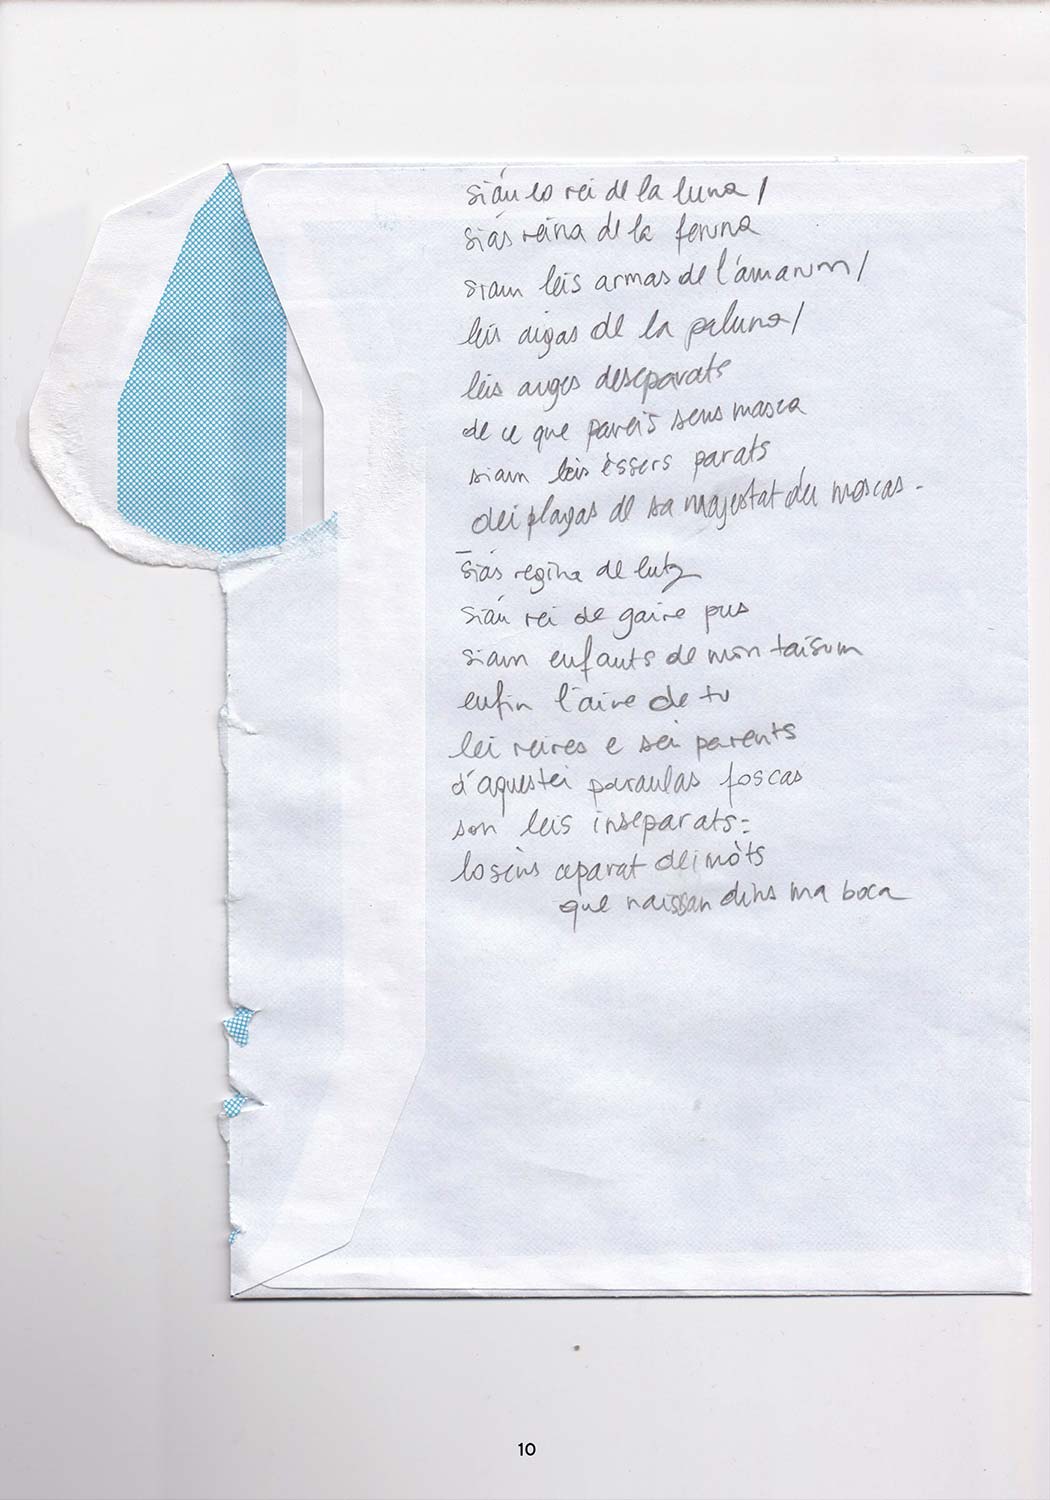 siáu lo rei de la luna /
siás reina de la feruna
siam leis armas de l'amarum /
leis aigas de la paluna /
leis auges deseparats
de ce que pareis sens masca
siam leis èssers parats
dei plagas de sa majestat dei moscas -
siás regina de lutz
siáu rei de gaire pus
siam enfants de mon taisum
enfin l'aire de tu
lei reires e sei parents
d'aquestei paraulas foscas
son leis inseparats:
lo sens aparat dei mòts
que naissan dins ma boca
10